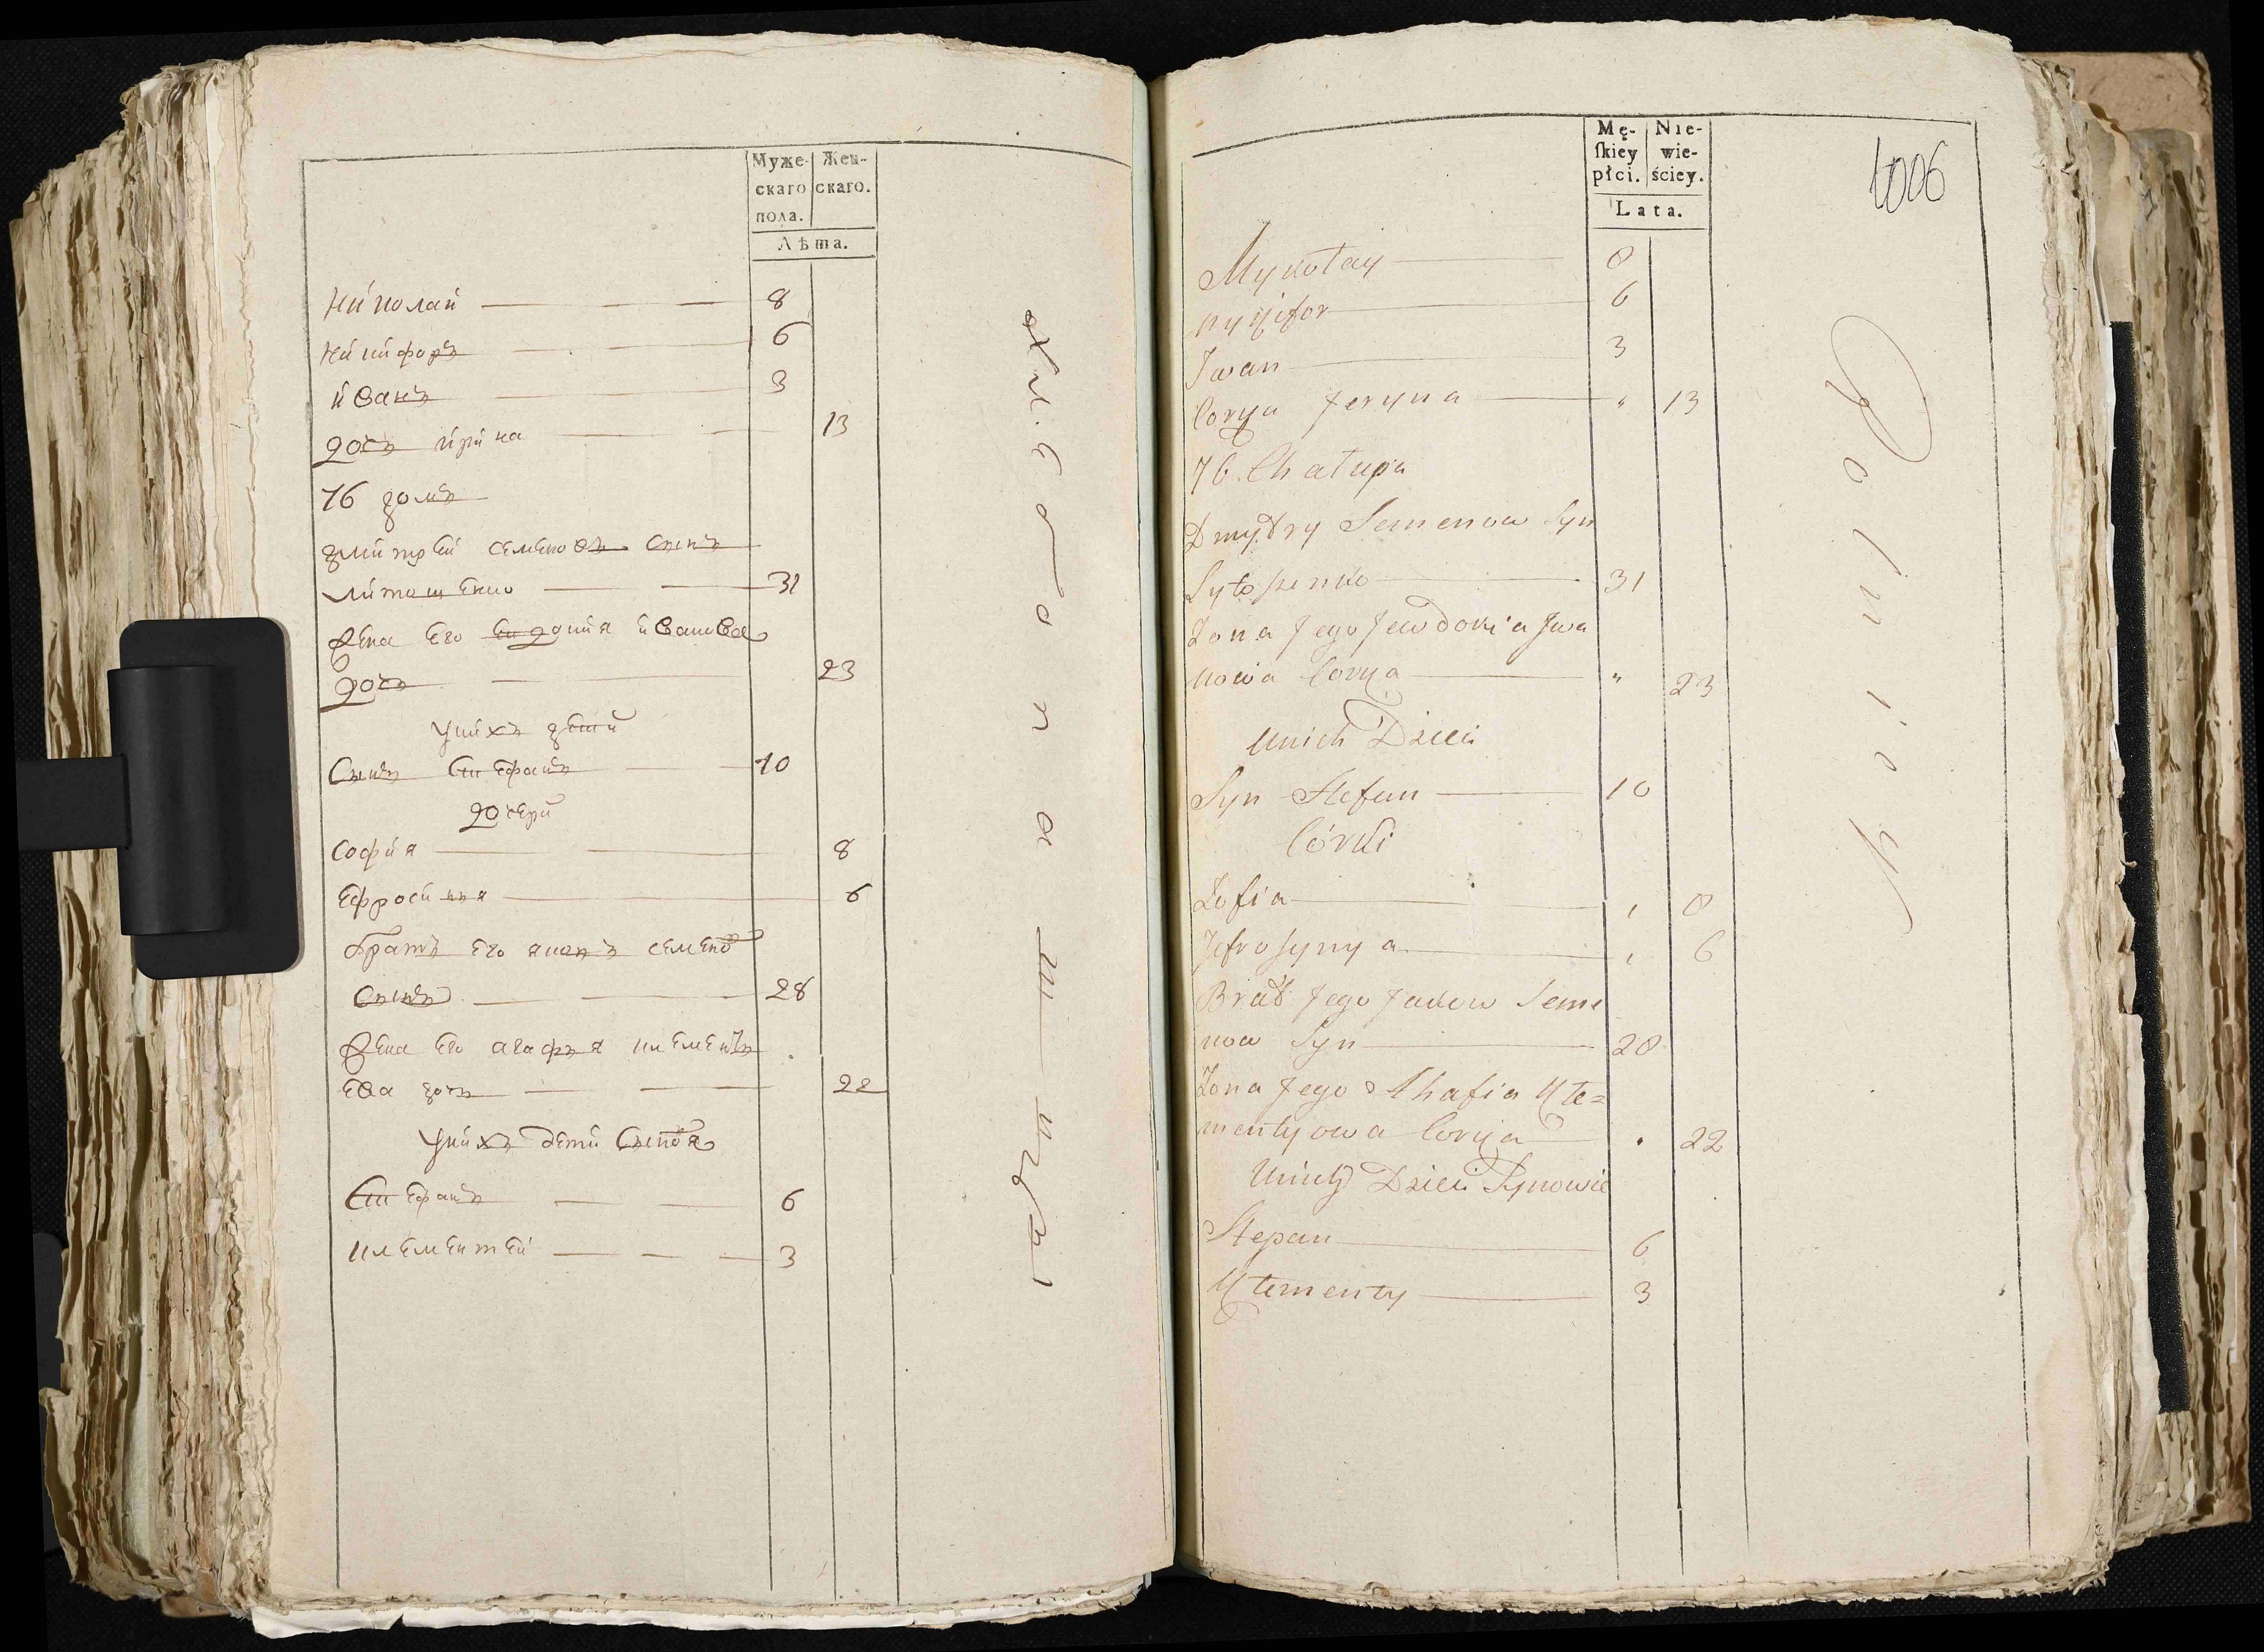 Муже- Жен-
скаго скаго.
пола.
Лѣта.
Николай 8
Никифоръ 6
иванъ 3
дочь ирина 13
76 домъ
дмитрей семеновъ сынъ
литошенко 31
жена его евдокия иванова
дочь 23
уних детй
Сынъ Стефанъ 10
дочери
София 8
Ефросиния 6
братъ его яковъ семено
сынъ 28
жена его агафья клементь
ева дочь 22
унихъ дети сыновя
Стефанъ 6
клементей 3
Mę- Nie-
ſkiey wie-
płci. ściey.
Lata.
1006
Mykołay 8
nykifor 6
Jwan 3
Corka Jeryna " 13
76. Chałupa
Dmytry Semenow Syn
Lytoszenko 31
Zona Jego Jewdokia Jwa
nowa Corka " 23
Unich Dzieci
Syn Stefan 10
Córki
Zofia 8
Jefrosynya 6
Brat Jego Jakow Seme
now Syn 28
Zona Jego Ahafia Kle=
mentyowa Corka 22
Unich Dzieci Synowie
Stepan 6
Klementy 3
Rolnik